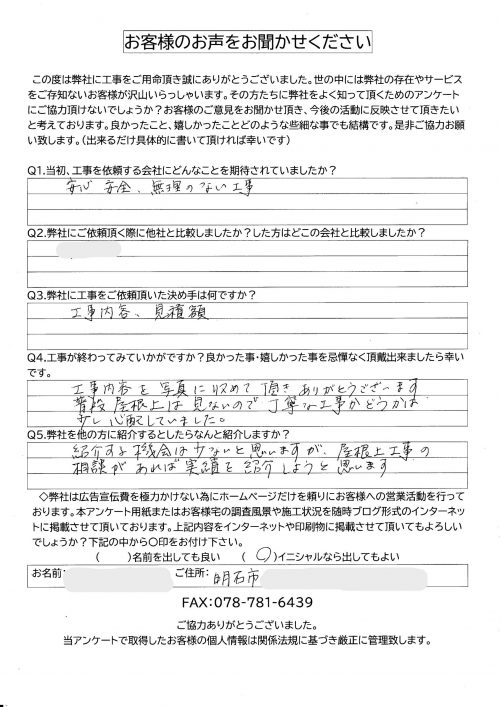 お客様のお声をお聞かせください
この度は弊社に工事をご用命頂き誠にありがとうございました。世の中には弊社の存在やサービス
をご存知ないお客様が沢山いらっしゃいます。その方たちに弊社をよく知って頂くためのアンケート
にご協力頂けないでしょうか？お客様のご意見をお聞かせ頂き、今後の活動に反映させて頂きたい
と考えております。良かったこと、嬉しかったことどのような些細な事でも結構です。是非ご協力お願
い致します。（出来るだけ具体的に書いて頂ければ幸いです）
Q1.当初、工事を依頼する会社にどんなことを期待されていましたか？
安心 安全、無理のない工事
Q2.弊社にご依頼頂く際に他社と比較しましたか？した方はどこの会社と比較しましたか？
Q3.弊社に工事をご依頼頂いた決め手は何ですか？
工事内容、見積額
Q4.工事が終わってみていかがですか？良かった事・嬉しかった事を忌憚なく頂戴出来ましたら幸い
です。
工事内容を写真に収めて頂きありがとうございます
普段屋根上は見ないので丁寧な工事かどうかは
少し心配していました。
Q5.弊社を他の方に紹介するとしたらなんと紹介しますか？
紹介する機会は少ないと思いますが、屋根上工事の
相談があれば実績を紹介しようと思います
◇弊社は広告宣伝費を極力かけない為にホームページだけを頼りにお客様への営業活動を行って
おります。本アンケート用紙またはお客様宅の調査風景や施工状況を随時ブログ形式のインターネッ
トに掲載させて頂いております。上記内容をインターネットや印刷物に掲載させて頂いてもよろしい
でしょうか？下記の中から〇印をお付け下さい。
（　）名前を出しても良い　（〇）イニシャルなら出してもよい
お名前:　ご住所: 明石市
FAX:078-781-6439
ご協力ありがとうございました。
当アンケートで取得したお客様の個人情報は関係法規に基づき厳正に管理致します。